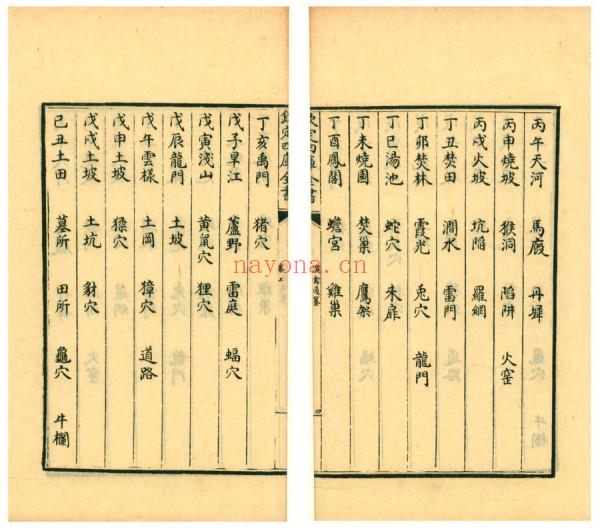 丙午天河 馬廄 丹墀
丙申燒坡 猴洞 陷阱 火窑
丙戌火坡 坑陷 羅網
丁丑焚田 澗水 雷門
丁卯焚林 霞光 兔穴 龍門
丁巳湯池 蛇穴 朱扉
丁未燒園 焚巢 鷹架
丁酉鳳閣 蟾宮 雞巢
欽定四庫全書
丁亥禹門 猪穴
戊子旱江 蘆野 雷庭 蝠穴
戊寅淺山 黄鼠穴 狸穴
戊辰龍門 土坡
戊午雲樣 土岡 獐穴 道路
戊申土坡 猱穴
戊戌土坡 土坑 豺穴
己丑土田 墓所 田所 龜穴 牛欄
nayona.cn